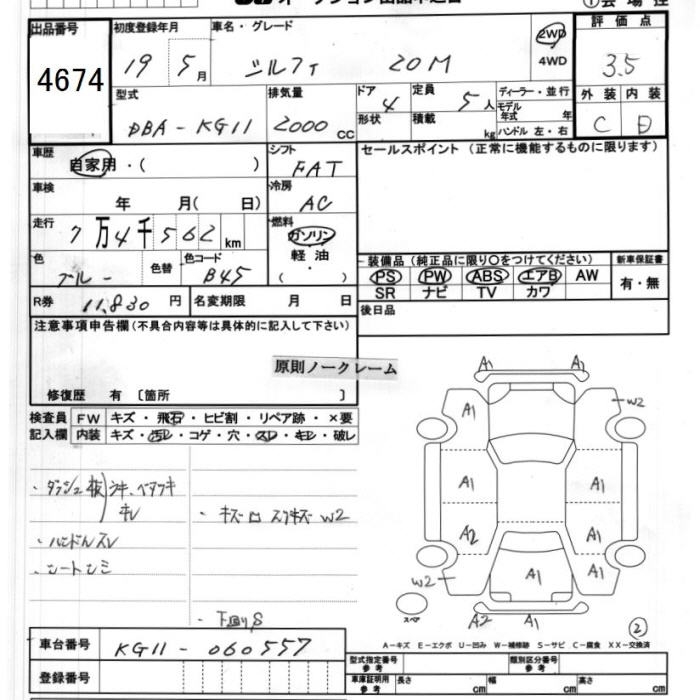 出品番号
4674
初度登録年月
19 5月
車名・グレード
シルフィ 20M
2WD
4WD
評価点
3.5
型式
DBA-KG11
排気量
2000cc
ドア
4
形状
定員
5人
積載
kg
ディーラー・並行
モデル年式 年
ハンドル 左・右
外装 内装
C D
車歴
自家用・( )
シフト
FAT
セールスポイント(正常に機能するものに限ります)
車検
年 月( 日)
冷房
AC
走行
7万4千562km
燃料
ガソリン
軽油
・
( )
色
ブルー
色替
色コード
B45
装備品(純正品に限り○をつけてください)
新車保証書
PS PW ABS エアB AW
SR ナビ TV カワ
有・無
R券
11,830円
名変期限 月 日
後日品
注意事項申告欄(不具合内容等は具体的に記入して下さい)
原則ノークレーム
修復歴 有〔箇所 〕
検査員記入欄
FW キズ・飛石・ヒビ割・リペア跡・×要
内装 キズ・汚レ・コゲ・穴・スレ・キレ・破レ
・ハンドルスレ
・シートシミ
・下廻りS
A1 A1
A1 W2
A1 A1
A2 A1
A1 A1
W2
A2 A1
スペア
2
A−キズ E−エクボ U−凹み W−補修跡 S−サビ C−腐食 XX−交換済
車台番号
KG11-060557
登録番号
型式指定番号
参考
類別区分番号
参考
車庫証明用
参考
長さ cm
幅 cm
高さ cm